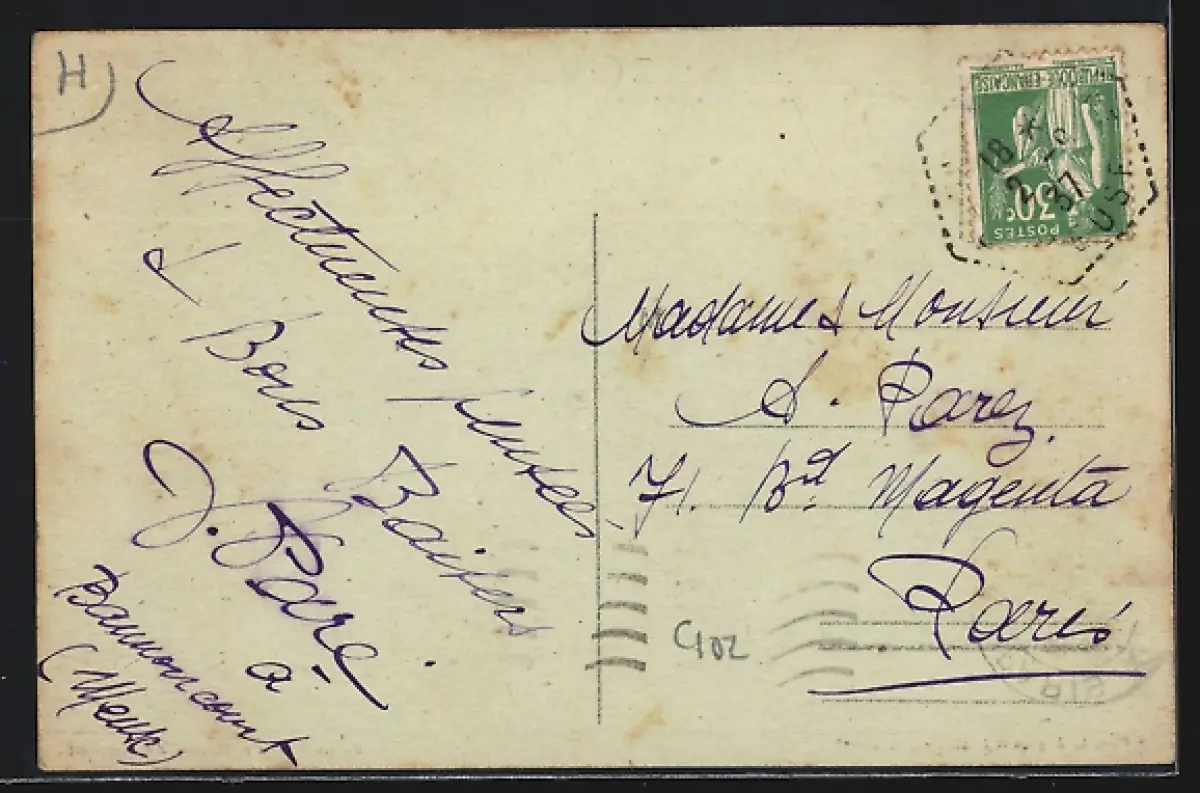 H
Affectueuses pensées
& Bons Baisers
J. Paré
à
(Meuse)
Madame & Monsieur
A. Parez
71. Bd Magenta
Paris
RÉPUBLIQUE FRANÇAISE
30c
POSTES
18 *
37
MEUSE
C102